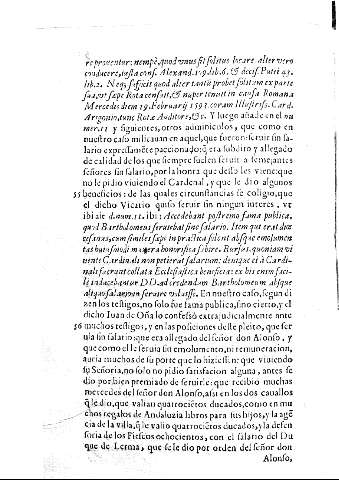 repræsentur: nempè, quod unus sit solitus locare alter verò
conducere, testa conf. Alexand. 119. lib. 6. & decis. Putei 43.
lib. 2. Neq; sufficit quod alter tantũ probet solitum ex parte
sua, ut sæpe Rota censuit, & nuper tenuit in causa Romana
Mercedis diem 19. Februarij 1593. coram Illustriss. Card.
Arigonio, tunc Rotæ Auditore, &c. Y luego añade en el nu
mer. 11 y siguientes, otros adminiculos, que como en
nuestro caso militauan en aquel, que fueron seruir sin sa-
lario expressamẽte paccionado; q̃ era subdito y allegado
de calidad de los que siempre suelen seruir a semejantes
señores sin salario, por la honra que dello les viene: que
no le pidio viuiendo el Cardenal, y que le dio algunos
55 beneficios: de las quales circunstancias se coligio, que
el dicho Vicario quiso seruir sin ningun interes, vt
ibi ait d. num. 11. ibi: Accedebant postremo fama publica,
quod Bartholomeus seruiebat sine salario. Item quæ erat diœ
cesanus, cum similes sæpe in practica soleant absq̃ue emolumen
tis
nali fuerunt collata Ecclesiastica beneficia: ex his enim faci-
lè inducebantur DD. ad credendum Bartholomeum absque
aliquo salario seruire voluisse. En nuestro caso, segun di
zen los testigos, no solo fue fama publica, sino cierto, y el
dicho Iuan de Oña lo confessò extrajudicialmente ante
56 muchos testigos, y en las posiciones deste pleito, que ser
uia sin salario: que era allegado del señor don Alonso, y
que como el le seruia sin emolumento, ni remuneracion,
auria muchos de su porte que lo hiziessen: que viuiendo
su Señoria, no solo no pidio satisfacion alguna, antes se
dio por bien premiado de seruirle: que recibio muchas
mercedes del señor don Alonso, assi en los dos cauallos
q̃ le dio, que valian quatrociẽtos ducados, como en mu
chos regalos de Andaluzia libros para sus hijos, y la agẽ
cia de la villa, q̃ le valio quatrociẽtos ducados, y la defen
soria de los Fiscos ochocientos, con el salario del Du
que de Lerma, que se le dio por orden del señor don
Alonso,